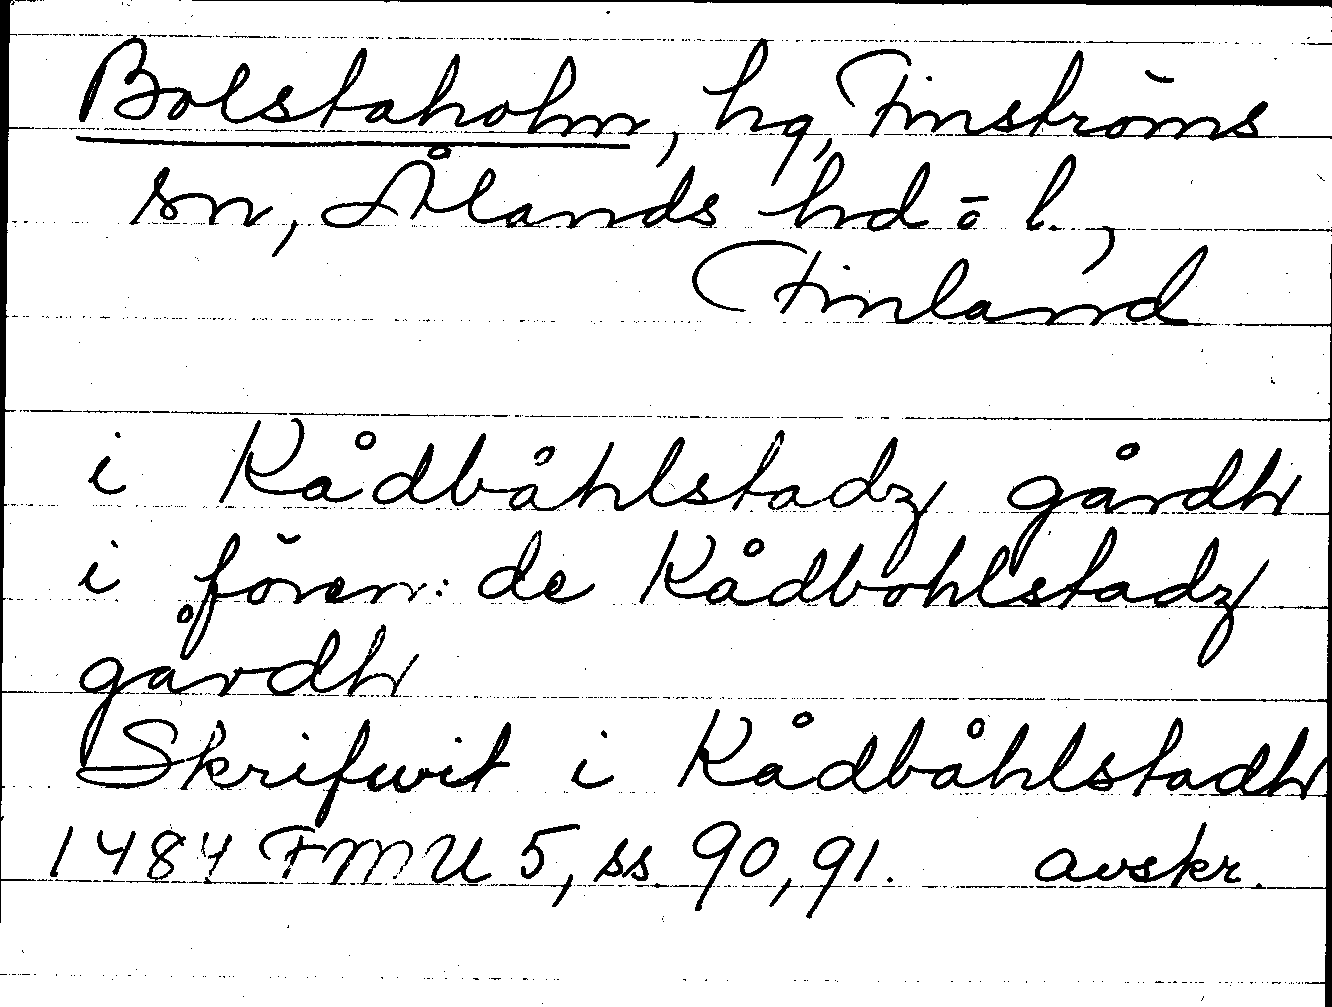 Bolstaholm, hg, Finströms
sn, Ålands hd o l.,
Finland
i Rådbåhlstadz gårdh
i fören: de Rådbohlstadz
gårdh
Skrifwit i Rådbåhlstadh
1484 FMU 5, ss. 90, 91. avskr.